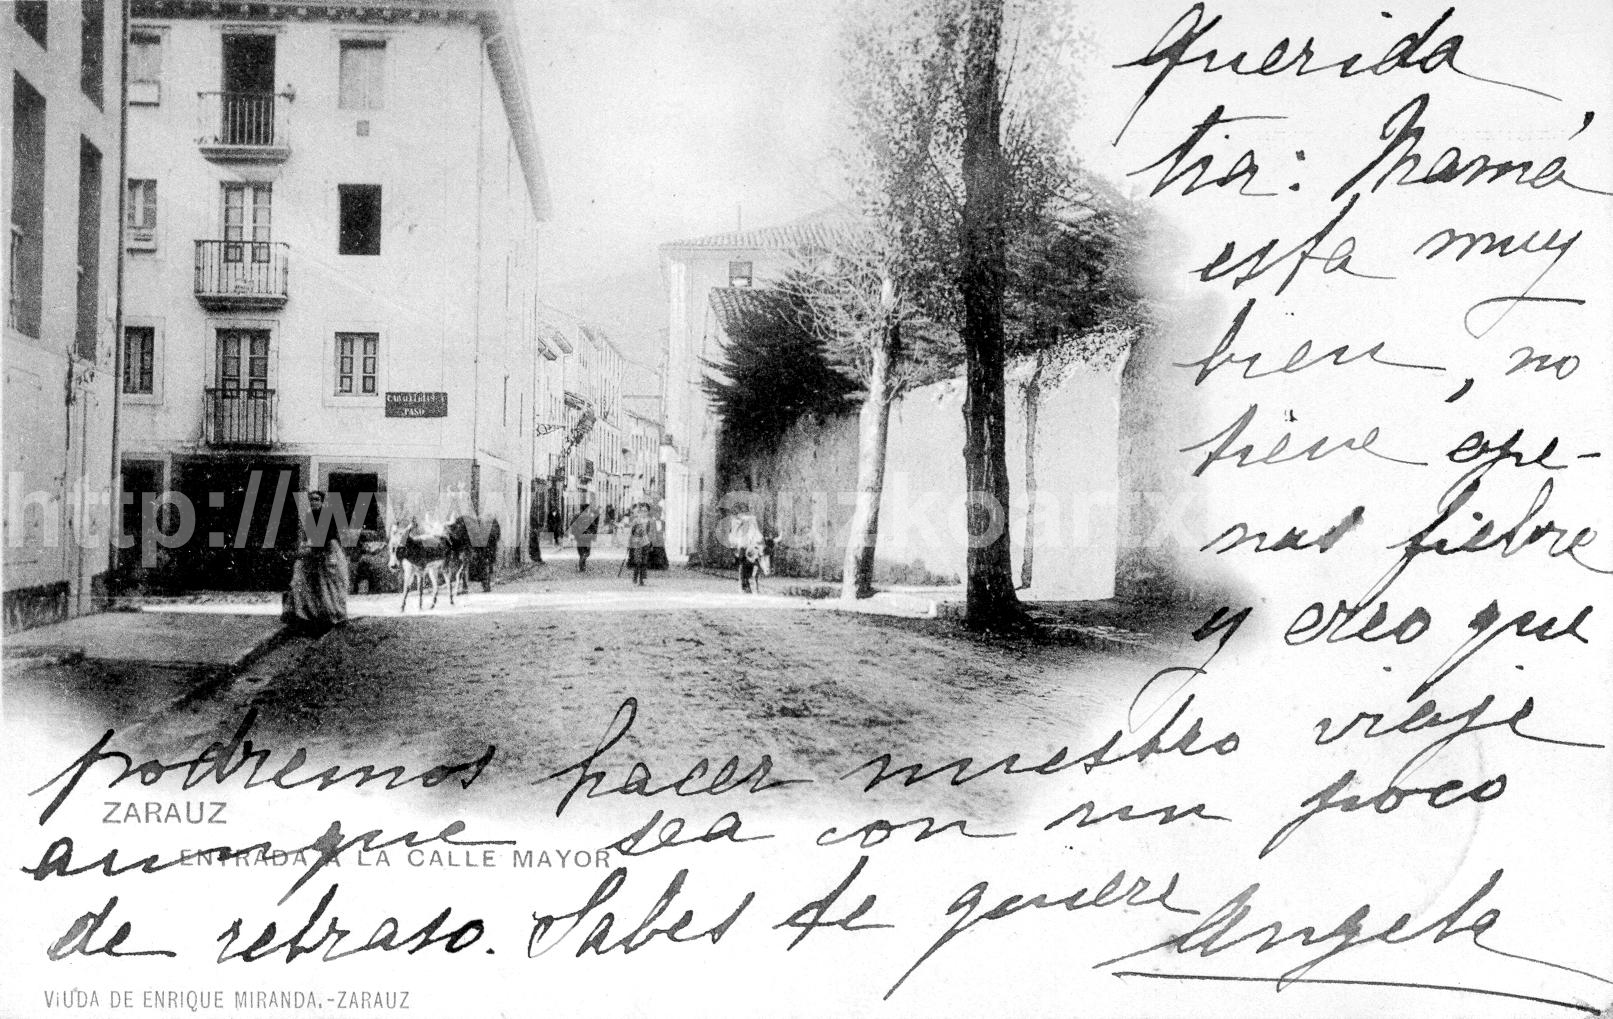 Querida
tia: Mamá
esta muy
bien, no
tiene ape-
nas fiebre
y creo que
podremos hacer nuestro viaje
aunque sea con un poco
de retraso. Sabes te quiere Angela
CABALLERIAS A
PASO
ZARAUZ
ENTRADA A LA CALLE MAYOR
VIUDA DE ENRIQUE MIRANDA.-ZARAUZ
http://www.zarauzkoarx